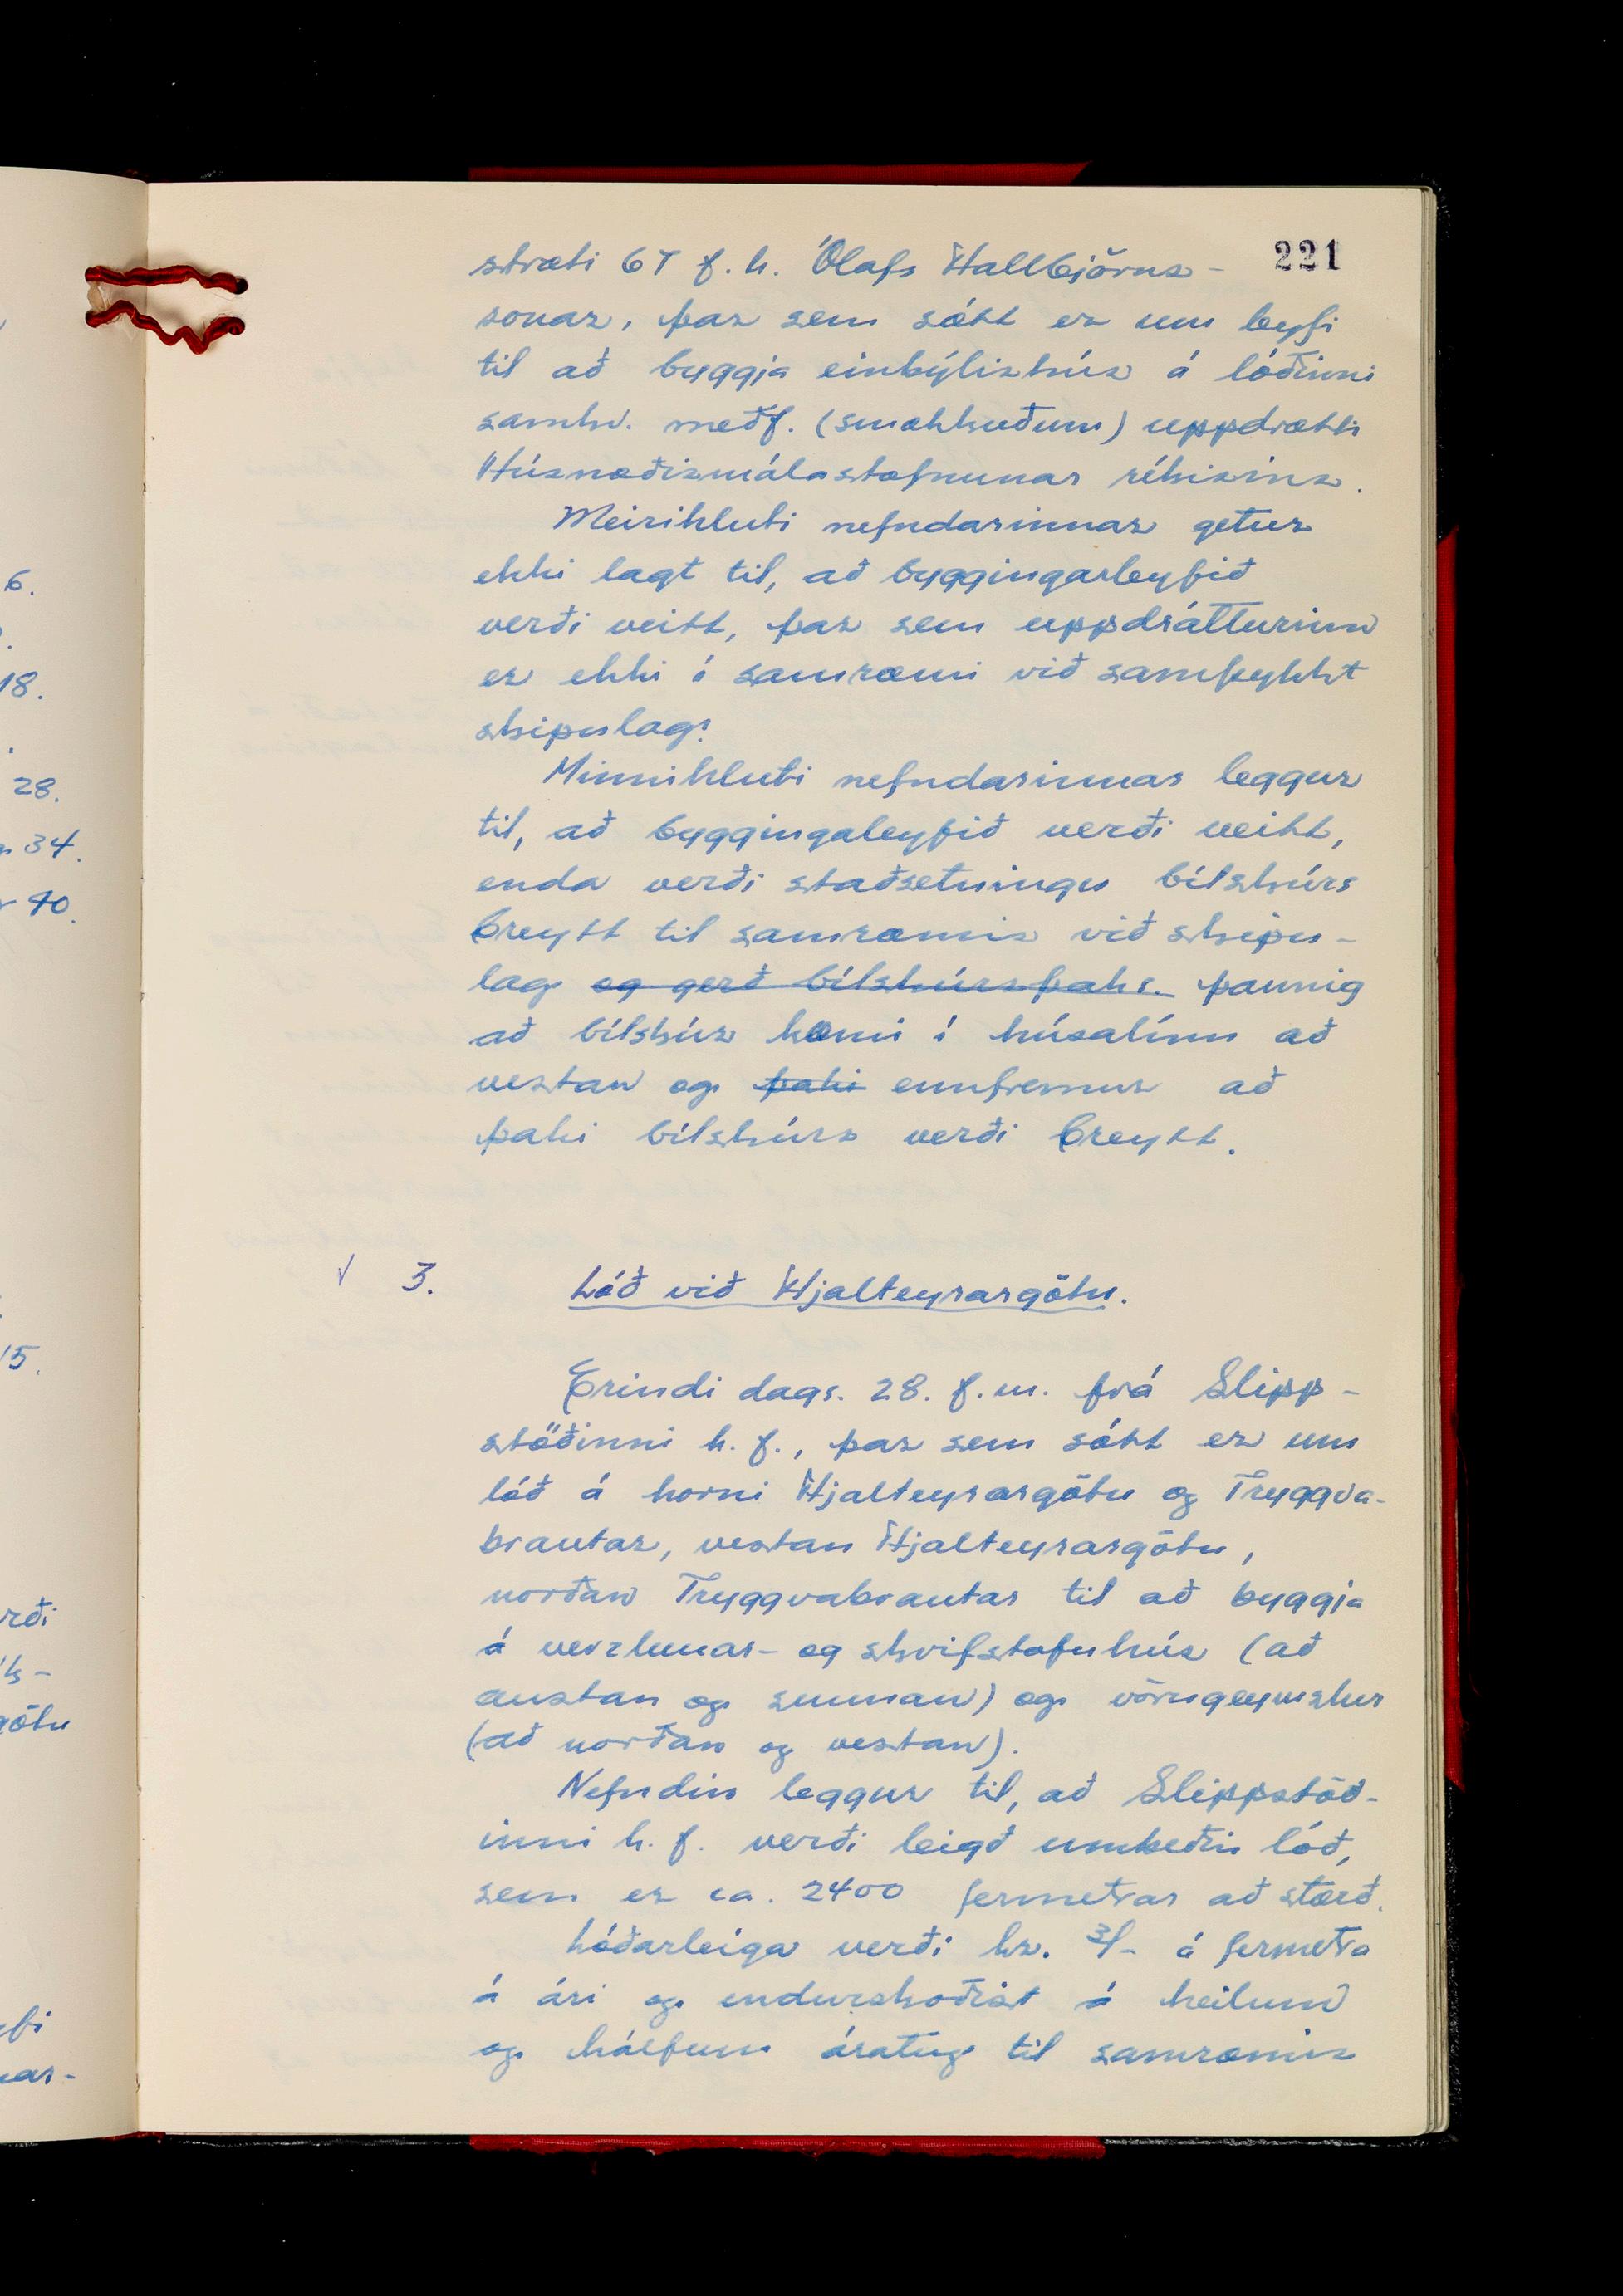 221
stræti 67 f.h. Ólafs Hallbjörns-
sonar, þar sem sótt er um leyfi
til að byggja einbýlishús á lóðinni
samhv. meðf. (smækkuðum) uppdrætti
Húsnæðismálastofnunar ríkisins.
Meirihluti nefndarinnar getur
ekki lagt til, að byggingarleyfið
verði veitt, þar sem uppdrátturinn
er ekki í samræmi við samþykkt
skipulag.
Minnihluti nefndarinnar leggur
til, að byggingaleyfið verði veitt,
enda verði staðsetningu bílskúrs
breytt til samræmis við skipu-
lag og gerð bílskúrsþaks. þannig
að bílskúr komi í húsalínu að
vestan og þaki ennfremur að
þaki bílskúrs verði breytt.
√ 3. Lóð við Hjalteyrargötu.
Erindi dags. 28. f.m. frá Slipp-
stöðinni h.f., þar sem sótt er um
lóð á horni Hjalteyrargötu og Tryggva-
brautar, vestan Hjalteyrargötu,
norðan Tryggvabrautar til að byggja
á verzlunar- og skrifstofuhús (að
austan og sunnan) og vörugeymslur
(að norðan og vestan).
Nefndin leggur til, að Slippstöð-
inni h.f. verði leigð umbeðin lóð,
sem er ca. 2400 fermetrar að stærð.
Lóðarleiga verði kr. 3/- á fermetra
á ári og endurskoðist á heilum
og hálfum áratug til samræmis
6.
18.
28.
34.
40.
15.
rði
götu